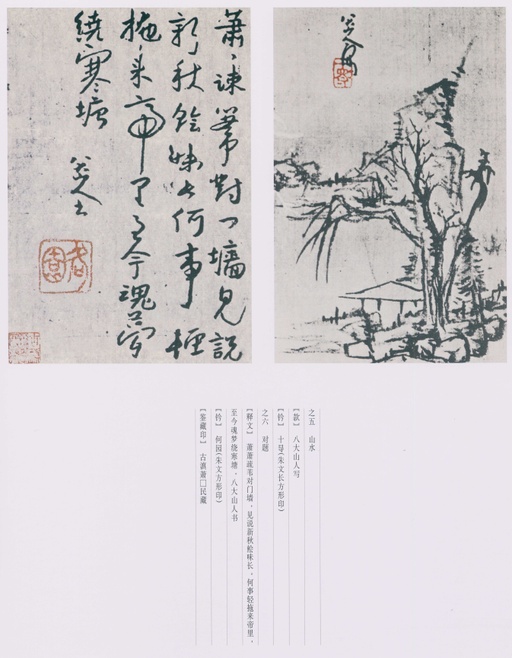 八大山人寫
蕭〻疎葦對门墻見說
新秋鱠味長何事輕
拖来帝里至今魂夢
繞寒塘
八大山人書
之五 山水
[款] 八大山人写
[钤] 十㝵(朱文长方形印)
之六 对题
[释文] 萧萧疏苇对门墙，见说新秋鲙味长。何事轻拖来帝里，
至今魂梦绕寒塘。八大山人书
[钤] 何园(朱文方形印)
[鉴藏印] 古滇萧□民藏